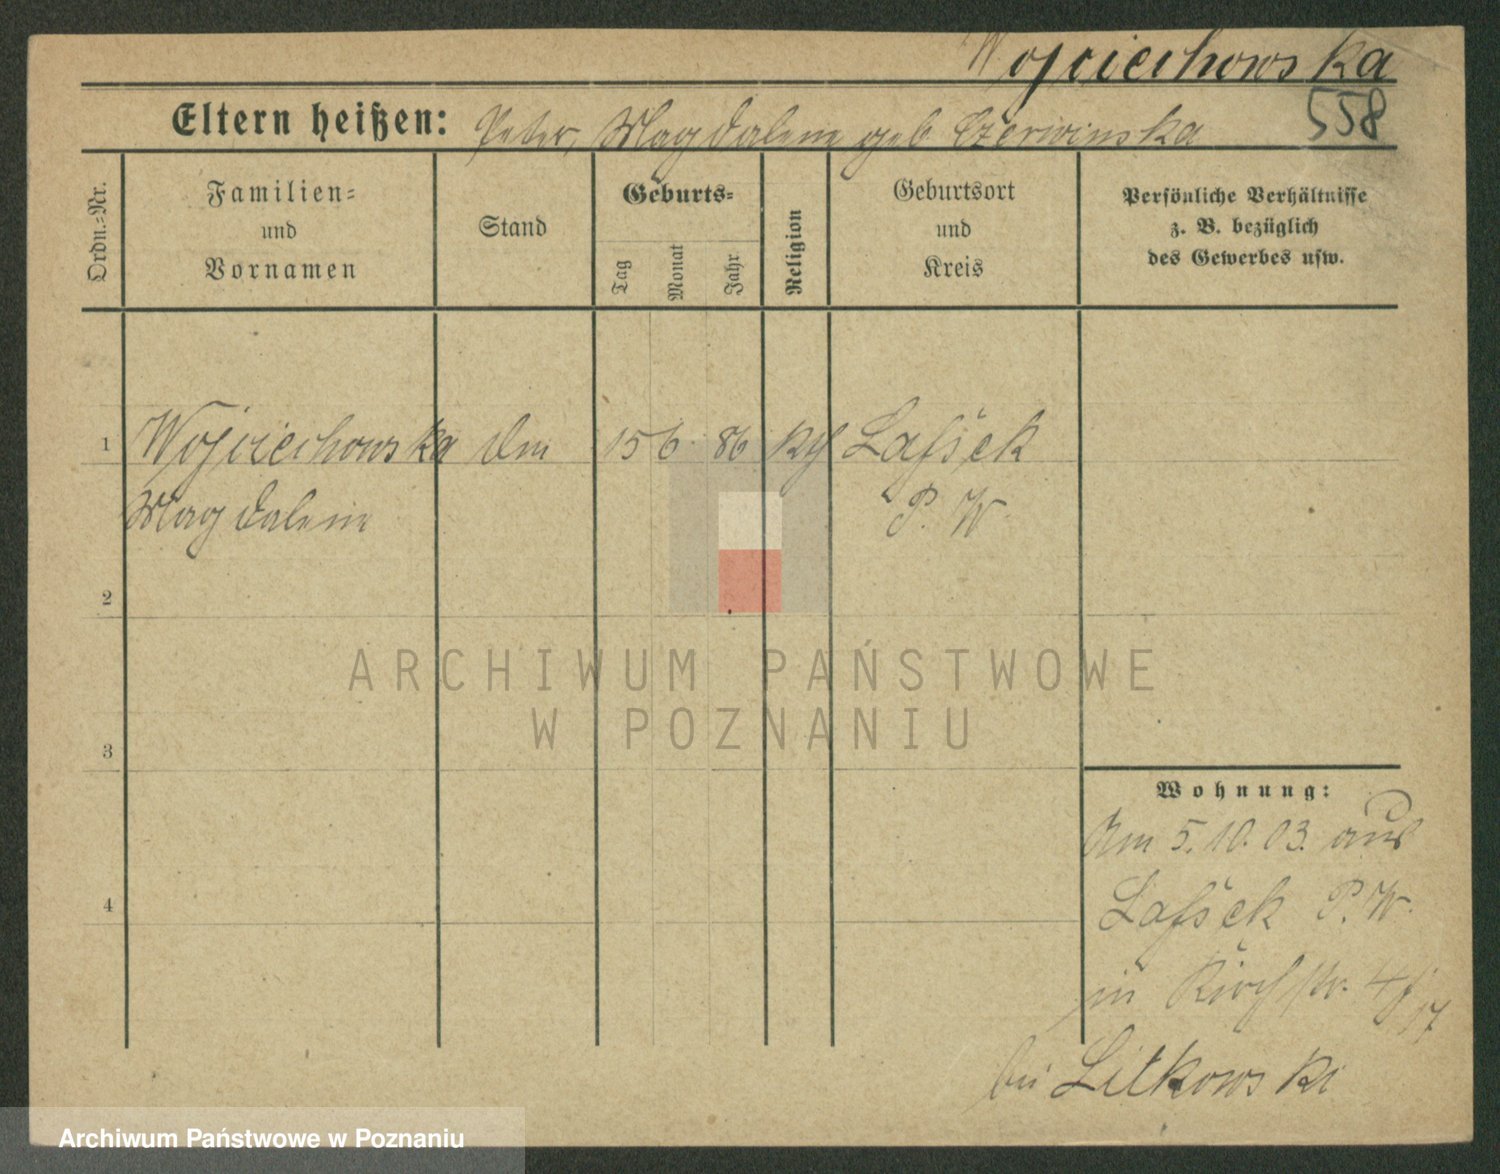 Wojciechowska
558
Eltern heißen: Peter, Magdalene geb Czerwinska
Ordn.-Nr.
Familien-
und
Vornamen
Stand
Geburts-
Tag
Monat
Jahr
Religion
Geburtsort
und
Kreis
Persönliche Verhältnisse
z. B. bezüglich
des Gewerbes usw.
1 Wojciechowska 15 6. 86 kth Lassek
Magdalene P. W.
2
3
4
ARCHIWUM PAŃSTWOWE
W POZNANIU
Wohnung:
Am 5.10.03. aus
Lassek P. W.
in Kirchstr.
17
bei Litkowski
Archiwum Państwowe w Poznaniu